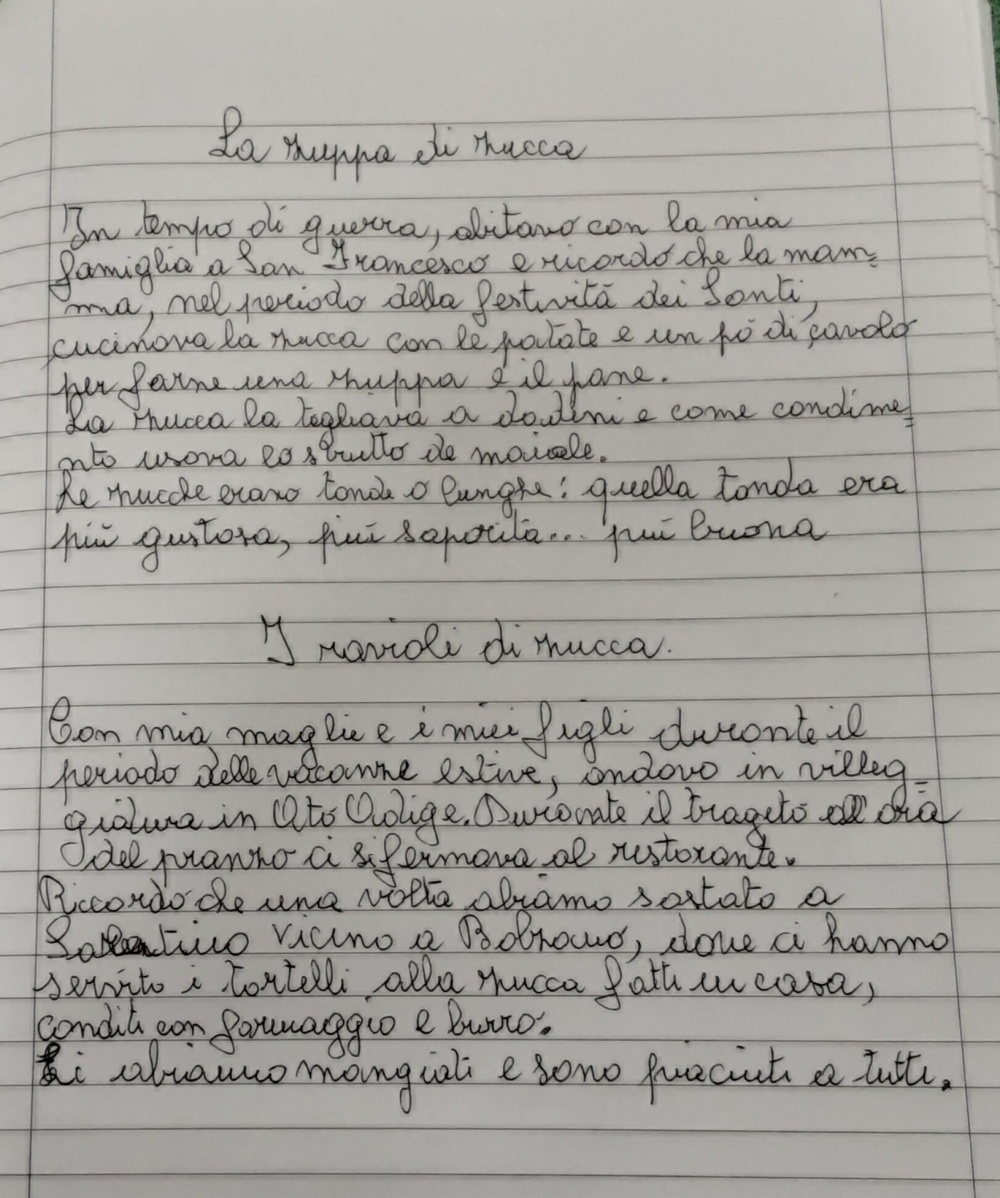 La zuppa di zucca
In tempo di guerra, abitavo con la mia
famiglia a San Francesco e ricordo che la mam=
ma, nel periodo della festività dei Santi,
cucinava la zucca con le patate e un pó di cavolo
per farne una zuppa e il pane.
La zucca la tagliava a dadini e come condime=
nto usava lo strutto de maiale.
Le zucche erano tonde o lunghe: quella tonda era
più gustosa, più saporita... più buona
I ravioli di zucca.
Con mia moglie e i miei figli durante il
periodo delle vacanze estive, andavo in villeg-
giatura in Alto Adige. Durante il trageto all'ora
del pranzo ci si fermava al ristorante.
Riccordo che una volta abiamo sostato a
vicino a Bolzano, dove ci hanno
servito i tortelli alla zucca fatti in casa,
conditi con formaggio e burro.
Li abiamo mangiati e sono piaciuti a tutti.